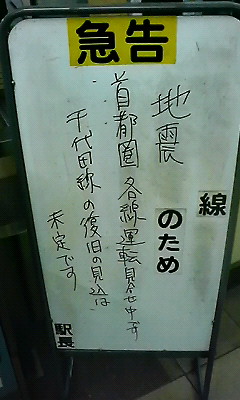 急告
線
地震のため
首都圏各線運転見合せ中です
千代田線の復旧の見込は
未定です
駅長